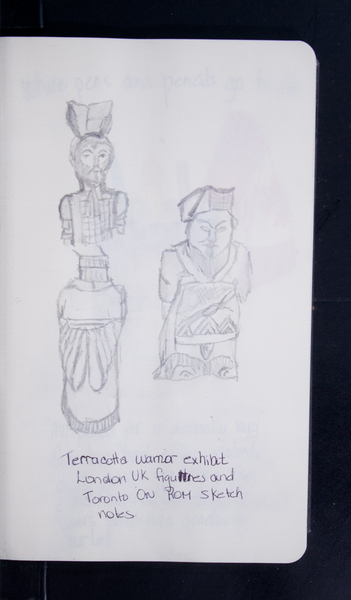 Terracotta warrior exhibit
London UK figurines and
Toronto ON ROM sketch
notes